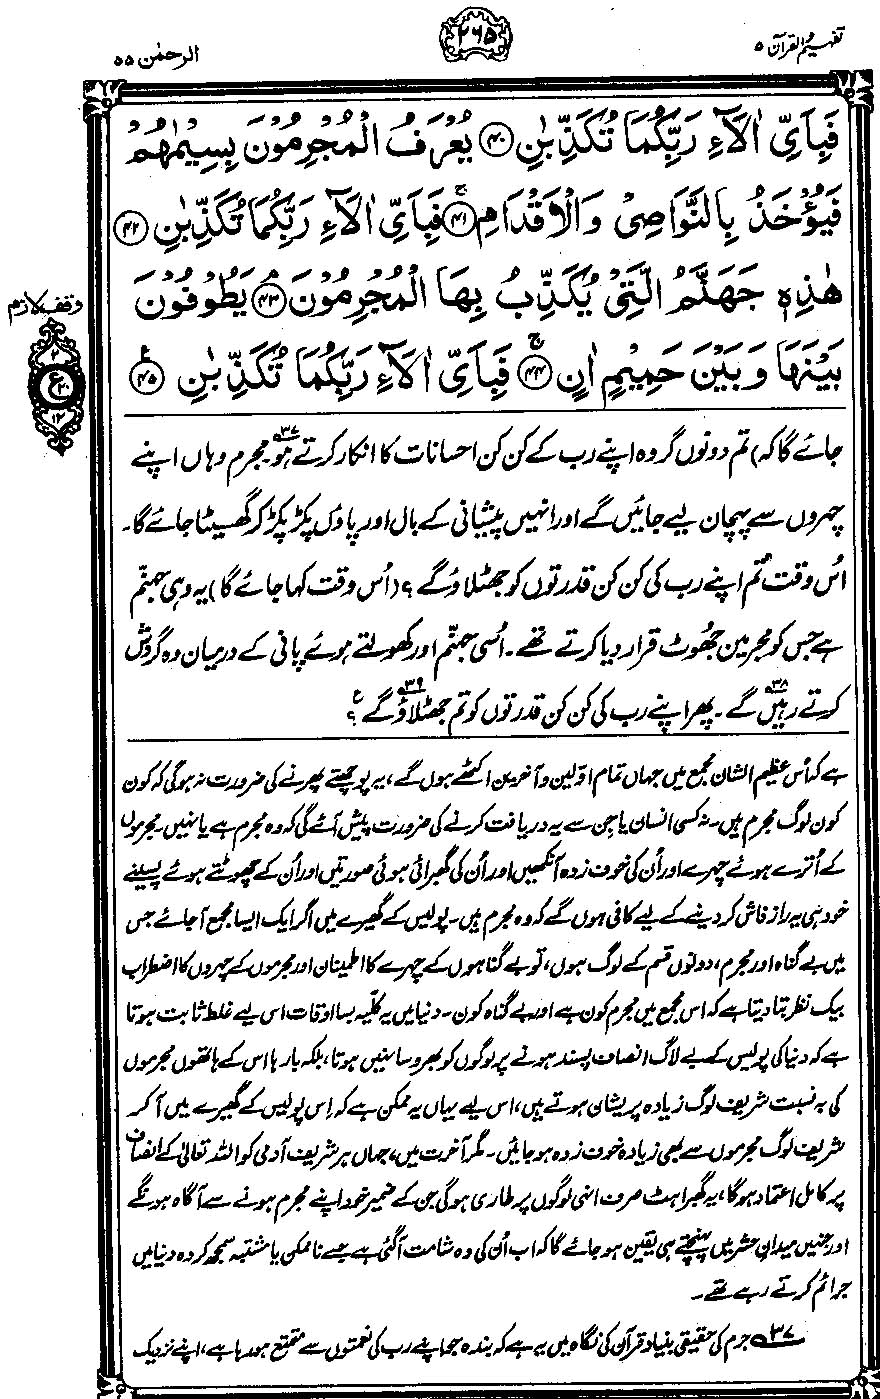 تفہیم القرآن ۵
۲۶۵
الرحمٰن ۵۵
فَبِاَیِّ اٰلَآءِ رَبِّكُمَا تُكَذِّبٰنِ ﴿۴۰﴾ یُعْرَفُ الْمُجْرِمُوْنَ بِسِیْمٰهُمْ
فَیُؤْخَذُ بِالنَّوَاصِیْ وَالْاَقْدَامِ ﴿۴۱﴾ۚ فَبِاَیِّ اٰلَآءِ رَبِّكُمَا تُكَذِّبٰنِ ﴿۴۲﴾
هٰذِهٖ جَهَنَّمُ الَّتِیْ یُكَذِّبُ بِهَا الْمُجْرِمُوْنَ ﴿۴۳﴾ۘ یَطُوْفُوْنَ
وقف لازم
بَیْنَهَا وَبَیْنَ حَمِیْمٍ اٰنٍ ﴿۴۴﴾ۚ فَبِاَیِّ اٰلَآءِ رَبِّكُمَا تُكَذِّبٰنِ ﴿۴۵﴾ع
۲
ع
۲۰
۱۲
جائے گا کہ) تم دونوں گروہ اپنے رب کے کن کن احسانات کا انکار کرتے ہو۳۷۔ مجرم وہاں اپنے
چہروں سے پہچان لیے جائیں گے اور انہیں پیشانی کے بال اور پاؤں پکڑ پکڑ کر گھسیٹا جائے گا۔
اُس وقت تم اپنے رب کی کن کن قدرتوں کو جھٹلاؤ گے؟ (اُس وقت کہا جائے گا) یہ وہی جہنّم
ہے جس کو مجرمین جھُوٹ قرار دیا کرتے تھے۔ اُسی جہنّم اور کھولتے ہوئے پانی کے درمیان وہ گردش
کرتے رہیں۳۸ گے۔ پھر اپنے رب کی کن کن قدرتوں کو تم جھٹلاؤ۳۹ گے؟ ع
ہے کہ اُس عظیم الشان مجمع میں جہاں تمام اوّلین و آخرین اکٹھے ہوں گے، یہ پوچھتے پھرنے کی ضرورت نہ ہوگی کہ کون
کون لوگ مجرم ہیں۔ نہ کسی انسان یا جِن سے یہ دریافت کرنے کی ضرورت پیش آئے گی کہ وہ مجرم ہے یا نہیں۔ مجرموں
کے اُترے ہوئے چہرے اور اُن کی خوف زدہ آنکھیں اور اُن کی گھبرائی ہوئی صورتیں اور اُن کے چھوٹتے ہوئے پسینے
خود ہی یہ راز فاش کر دینے کے لیے کافی ہوں گے کہ وہ مجرم ہیں۔ پولیس کے گھیرے میں اگر ایک ایسا مجمع آجائے جس
میں بے گناہ اور مجرم، دونوں قسم کے لوگ ہوں، تو بے گناہوں کے چہرے کا اطمینان اور مجرموں کے چہروں کا اضطراب
بیک نظر بتا دیتا ہے کہ اس مجمع میں مجرم کون ہے اور بے گناہ کون۔ دنیا میں یہ کلّیہ بسا اوقات اس لیے غلط ثابت ہوتا
ہے کہ دنیا کی پولیس کے بے لاگ انصاف پسند ہونے پر لوگوں کو بھروسا نہیں ہوتا، بلکہ بارہا اس کے ہاتھوں مجرموں
کی بہ نسبت شریف لوگ زیادہ پریشان ہوتے ہیں، اس لیے یہاں یہ ممکن ہے کہ اِس پولیس کے گھیرے میں آ کر
شریف لوگ مجرموں سے بھی زیادہ خوف زدہ ہو جائیں۔ مگر آخرت میں، جہاں ہر شریف آدمی کو اللہ تعالیٰ کے انصاف
پر کامل اعتماد ہوگا، یہ گھبراہٹ صرف انہی لوگوں پر طاری ہوگی جن کے ضمیر خود اپنے مجرم ہونے سے آگاہ ہونگے
اور جنہیں میدانِ حشر میں پہنچتے ہی یقین ہو جائے گا کہ اب اُن کی وہ شامت آگئی ہے جسے ناممکن یا مشتبہ سمجھ کر وہ دنیا میں
جرائم کرتے رہے تھے۔
۳۷ جرم کی حقیقی بنیاد قرآن کی نگاہ میں یہ ہے کہ بندہ جو اپنے رب کی نعمتوں سے متمتع ہو رہا ہے، اپنے نزدیک